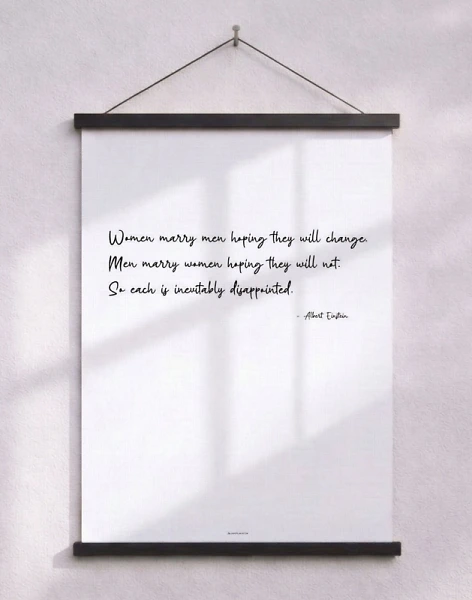 Women marry men hoping they will change.
Men marry women hoping they will not.
So each is inevitably disappointed.
- Albert Einstein